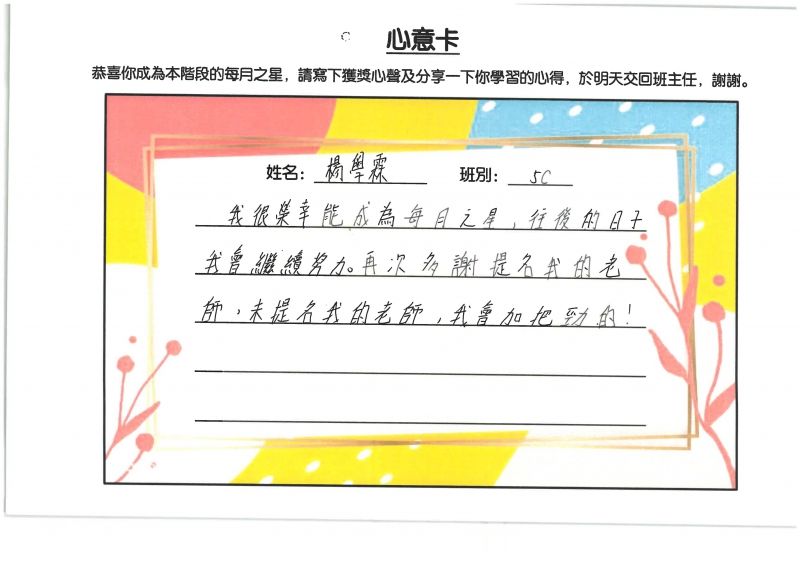 心意卡
恭喜你成為本階段的每月之星，請寫下獲獎心聲及分享一下你學習的心得，於明天交回班主任，謝謝。
姓名： 楊學霖 班別： 5C
我很榮幸能成為每月之星，往後的日子
我會繼續努力。再次多謝提名我的老
師，未提名我的老師，我會加把勁的！